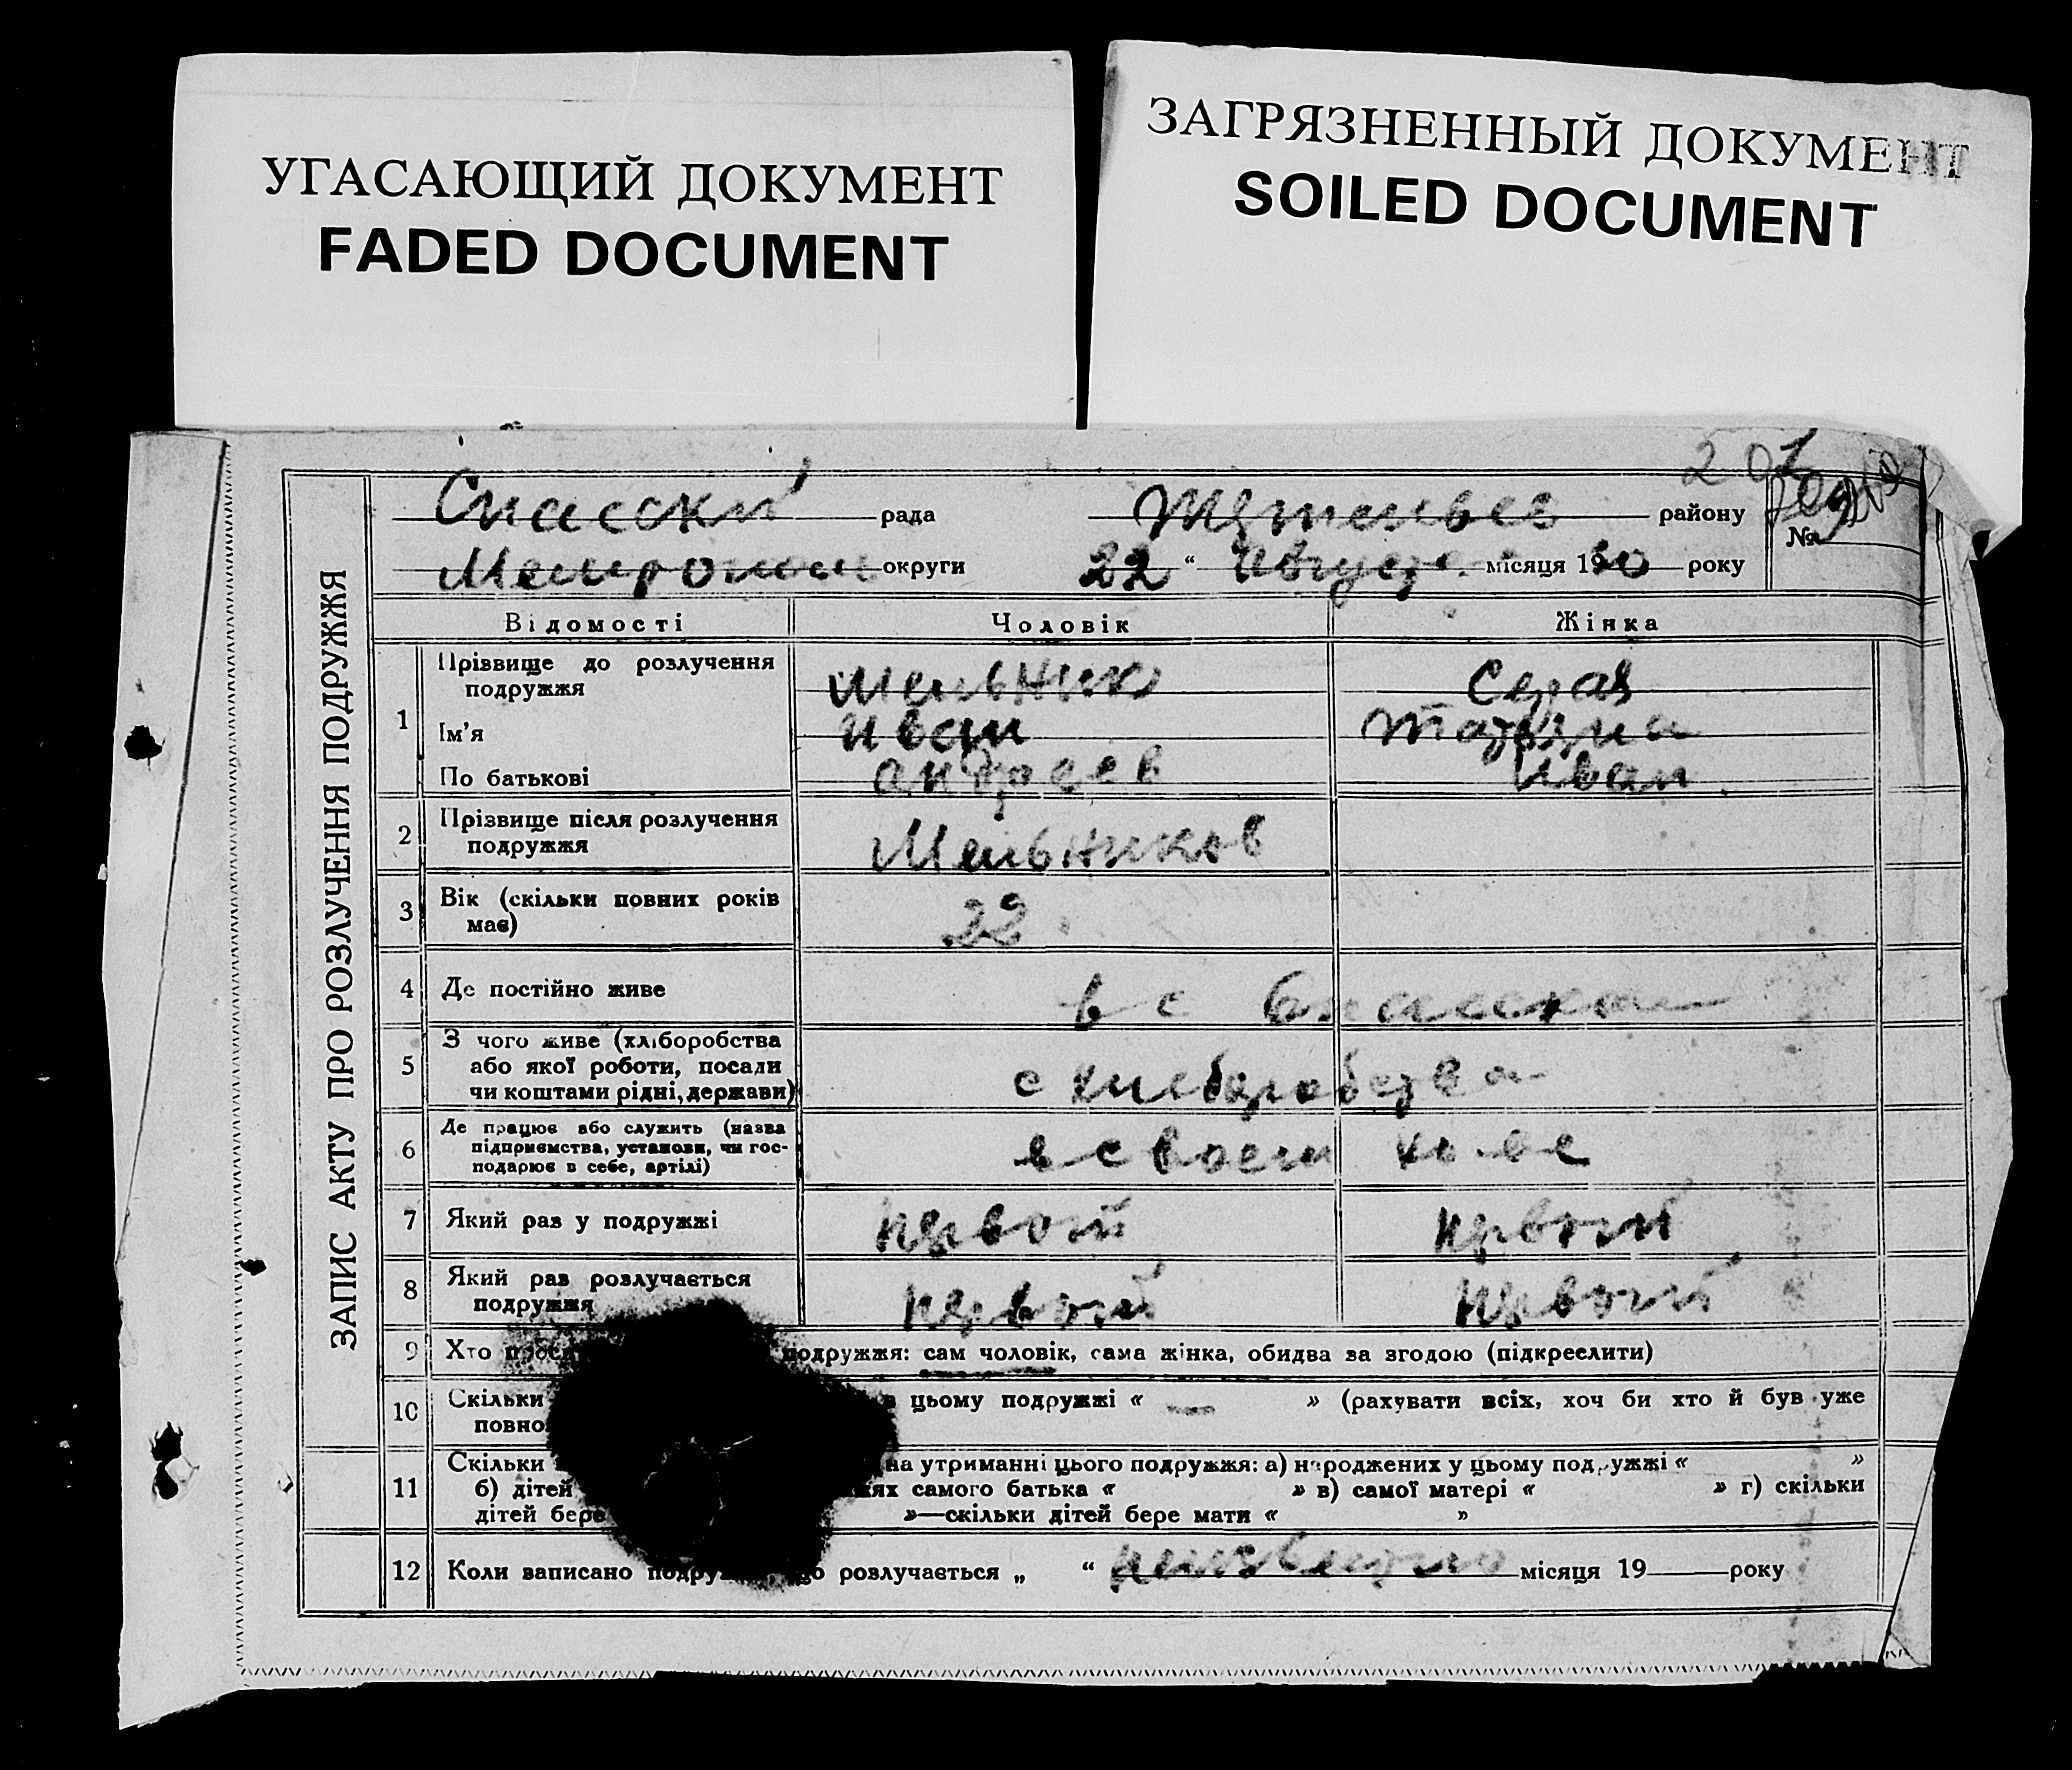 УГАСАЮЩИЙ ДОКУМЕНТ
FADED DOCUMENT
ЗАГРЯЗНЕННЫЙ ДОКУМЕНТ
SOILED DOCUMENT
ЗАПИС АКТУ ПРО РОЗЛУЧЕННЯ ПОДРУЖЖЯ
Спасски рада району №
округи 22 “ Августа місяця 1930 року
Відомості Чоловік Жінка
1 Прізвище до розлучення Мельник Серая
подружжя
Ім'я Иван Татьяна
По батькові Андреев Иван
2 Прізвище після розлучення Мельников
подружжя
3 Вік (скільки повних років 22
має)
4 Де постійно живе в с
5 З чого живе (хліборобства
або якої роботи, посади с
чи коштами рідні, держави)
6 Де працює або служить (назва
підприємства, установи, чи гос- в своем
подарює в себе, артілі)
7 Який раз у подружжі первой первой
8 Який раз розлучається первой первой
подружжя
9 Хто подружжя: сам чоловік, сама жінка, обидва за згодою (підкреслити)
10 Скільки в цьому подружжі « — » (рахувати всіх, хоч би хто й був уже
11 Скільки на утриманні цього подружжя: а) народжених у цьому подружжі « »
б) дітей самого батька « » в) самої матері « » г) скільки
дітей бере »—скільки дітей бере мати « »
12 Коли записано розлучається „ “ неизвестно місяця 19 року